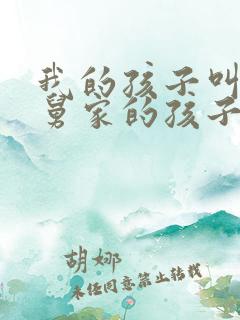 我的孩子叫
舅家的孩子
胡娜
未经同意禁止转载